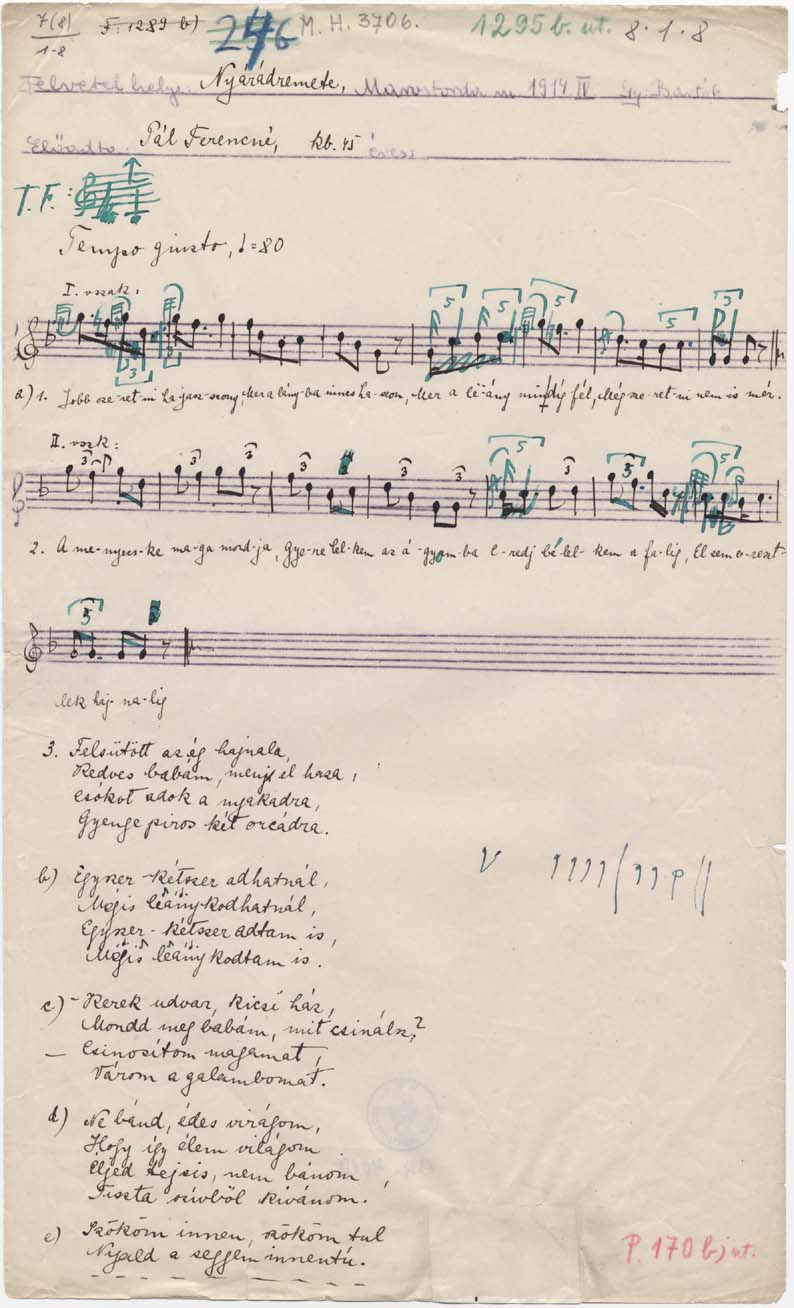 7(8) F. 1289 b) M. H. 3706. 1295 b. ut. 8.1.8
1-8
Felvétel helye: Nyárádremete, Marostorda m. 1914 IV Gy: Bartók
Előadta: Pál Ferencné, kb. 45 éves
T.F.:
Tempo giusto, ♩=80
I. vszak:
5 5 5 5 3
3
a) 1. Jobb sze-ret-ni ha-jasz-szony, Mer a lány-ba nincs ha-szon, Mer a lë-ány mindig fél, Még sze-ret-ni nem is mér.
II. vszk:
3 3 3 3 3 5 3 5 5
2. A me-nyecs-ke ma-ga mond-ja, Gye-re lel-kem az á-gyom-ba E-redj bé lel-kem a fa-lig, El sem e-reszt-
3
lek haj-na-lig
3. Felsütött az ég hajnala,
Kedves babám, menj el haza,
Csókot adok a nyakadra,
Gyenge piros két orcádra.
V
b) Egyszer-kétszer adhatnál,
Mégis leánykodhatnál,
Egyszer-kétszer adtam is,
Mégis leánykodtam is.
c) - Kerek udvar, kicsi ház,
Mondd meg babám, mit csinálsz?
— Csinosítom magamat,
Várom a galambomat.
d) Ne bánd, édes virágom,
Hogy így élem világom
Éljed nem bánom,
Tiszta szívből kivánom.
e) Szököm innen, szököm tul
Nyald a seggem innentú.
P. 170 b) ut.